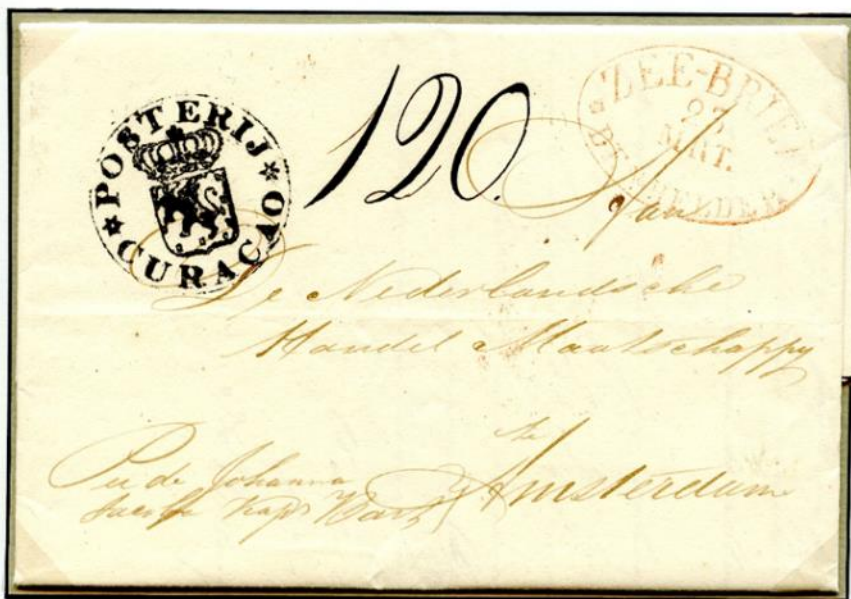 POSTERIJ
CURAÇAO
120.
ZEE-BRIEF
23
MRT.
HELDER
Aan
De Nederlandsche
Handel Maatschappy
te
Amsterdam
Per de Johanna
Kapt